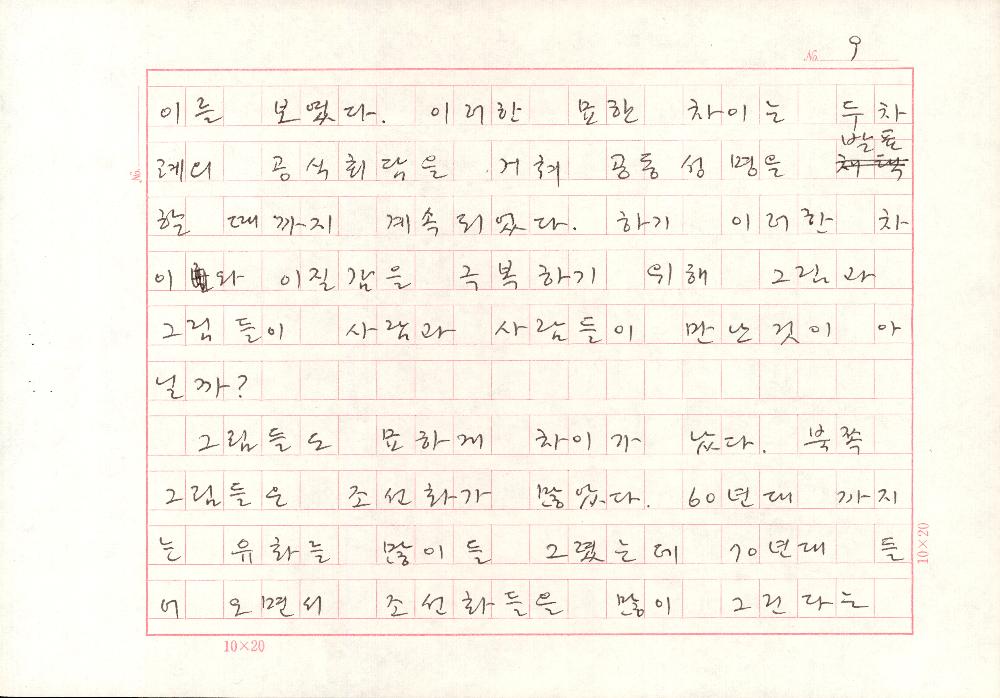 No. 9
이를 보였다. 이러한 묘한 차이는 두차
발표
No.
례의 공식회담을 거쳐 공동성명을 채택
할 때까지 계속되었다. 하기 이러한 차
이와 이질감을 극복하기 위해 그림과
그림들이 사람과 사람들이 만난것이 아
닐까?
그림들도 묘하게 차이가 났다. 북쪽
그림들은 조선화가 많았다. 60년대 까지
는 유화를 많이들 그렸는데 70년대 들
어 오면서 조선화들을 많이 그린다는
10×20
10×20